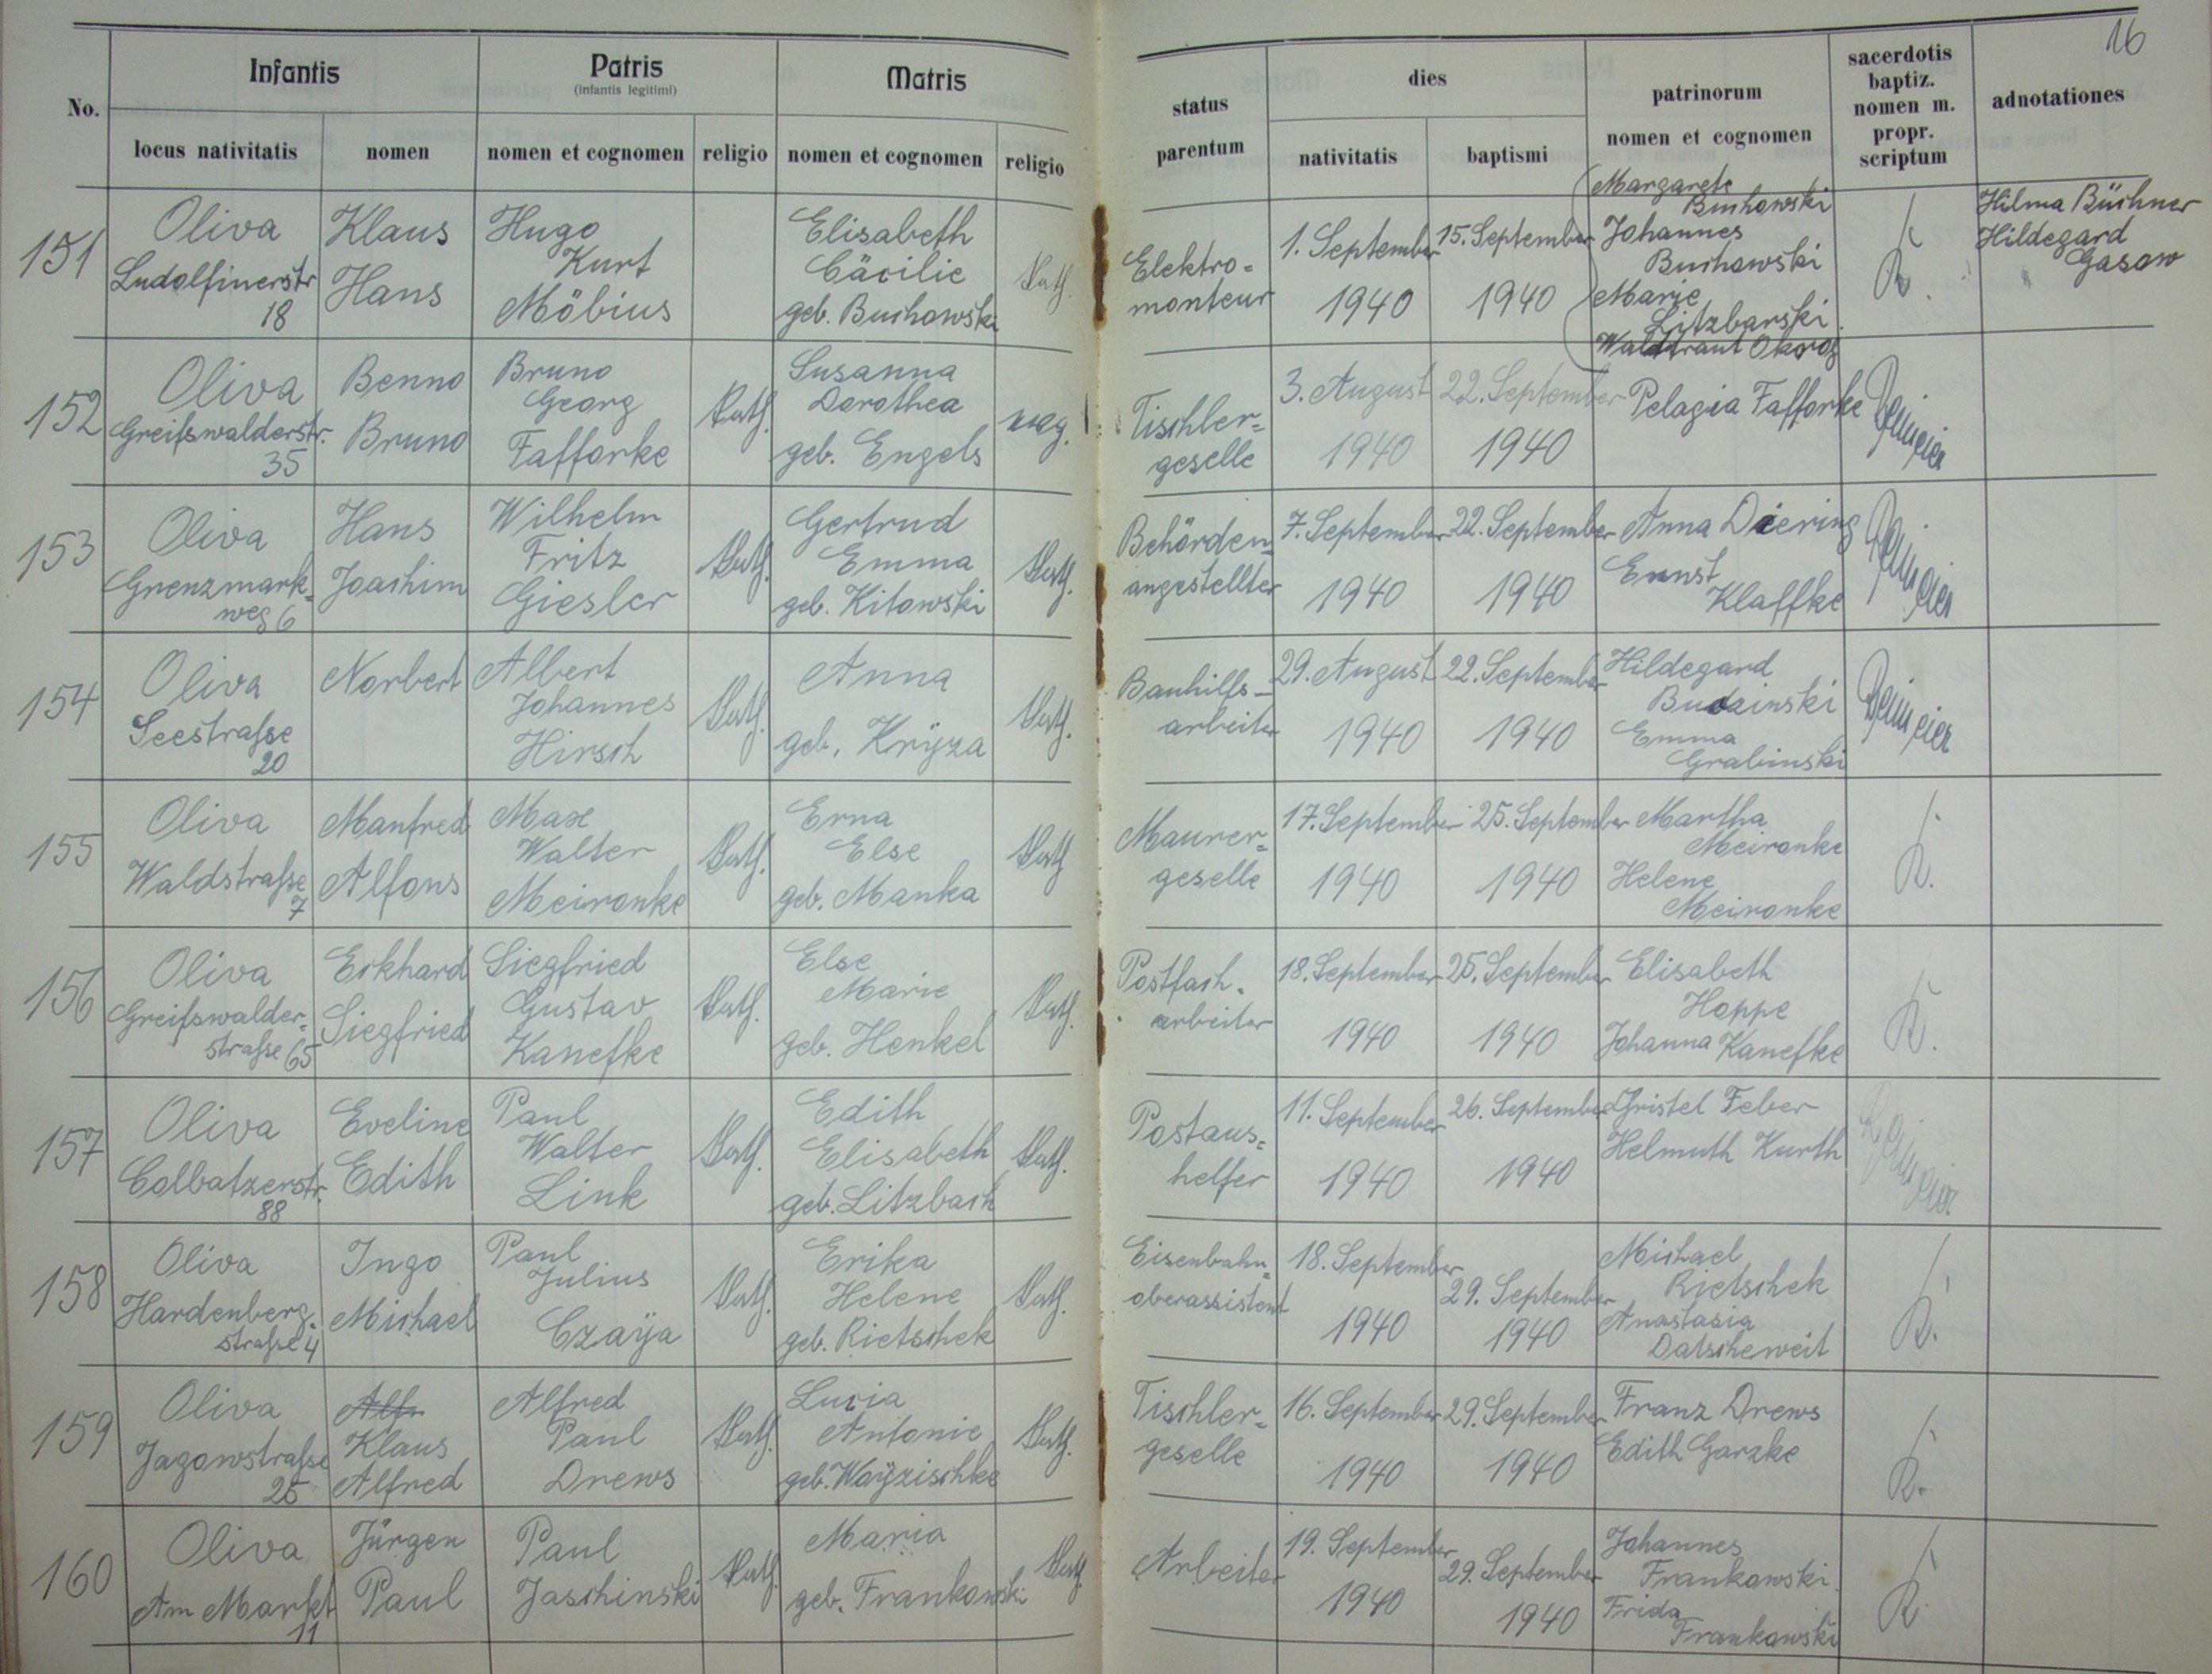 16
Infantis
Patris
(infantis legitimi)
Matris
status
parentum
dies
patrinorum
nomen et cognomen
sacerdotis
baptiz.
nomen m.
propr.
scriptum
adnotationes
No.
locus nativitatis
nomen
nomen et cognomen
religio
nomen et cognomen
religio
nativitatis
baptismi
151
Oliva
Ludolfinerstr
18
Klaus
Hans
Hugo
Kurt
Möbius
Elisabeth
Cäcilie
geb. Buchowski
kath.
Elektro-
monteur
1. September
1940
15. September
1940
Margarete
Buchowski
Johannes
Buchowski
Marie
Litzbarski
Waldtraut
K.
Hilma Büchner
Hildegard
Gasow
152
Oliva
Greifswalderstr.
35
Benno
Bruno
Bruno
Georg
Fafforke
kath.
Susanna
Dorothea
geb. Engels
evag.
Tischler-
geselle
3. August
1940
22. September
1940
Pelagia Fafforke
153
Oliva
Grenzmark-
weg 6
Hans
Joachim
Wilhelm
Fritz
Giesler
kath.
Gertrud
Emma
geb. Kitowski
kath.
Behörden-
angestellter
7. September
1940
22. September
1940
Anna Diering
Ernst
Klaffke
154
Oliva
Seestraße
20
Norbert
Albert
Johannes
Hirsch
kath.
Anna
geb. Krÿza
kath.
Bauhilfs-
arbeiter
29. August
1940
22. September
1940
Hildegard
Emma
Grabinski
155
Oliva
Waldstraße
7
Manfred
Alfons
Max
Walter
Meironke
kath.
Erna
Else
geb. Manka
kath.
Maurer-
geselle
17. September
1940
25. September
1940
Martha
Meironke
Helene
Meironke
K.
156
Oliva
Greifswalder-
straße 65
Eckhard
Siegfried
Siegfried
Gustav
Kanefke
kath.
Else
Marie
geb. Henkel
kath.
Postfach-
arbeiter
18. September
1940
25. September
1940
Elisabeth
Hoppe
Johanna Kanefke
K.
157
Oliva
Colbatzerstr.
88
Eveline
Edith
Paul
Walter
Link
kath.
Edith
Elisabeth
geb. Litzbach
kath.
Postaus-
helfer
11. September
1940
26. September
1940
Christel Feber
Helmuth Kurth
158
Oliva
Hardenberg-
straße 4
Ingo
Michael
Paul
Julius
Czaÿa
kath.
Erika
Helene
geb. Rietschek
kath.
Eisenbahn-
oberassistent
18. September
1940
29. September
1940
Michael
Rietschek
Anastasia
Datscheweit
K.
159
Oliva
Jagowstraße
25
Alfr
Klaus
Alfred
Alfred
Paul
Drews
kath.
Lucia
Antonie
geb. Woÿzischke
kath.
Tischler-
geselle
16. September
1940
29. September
1940
Franz Drews
Edith Garzke
K.
160
Oliva
Am Markt
11
Jürgen
Paul
Paul
Jaschinski
kath.
Maria
geb. Frankowski
kath.
Arbeiter
19. September
1940
29. September
1940
Johannes
Frankowski
Frida
Frankowski
K.